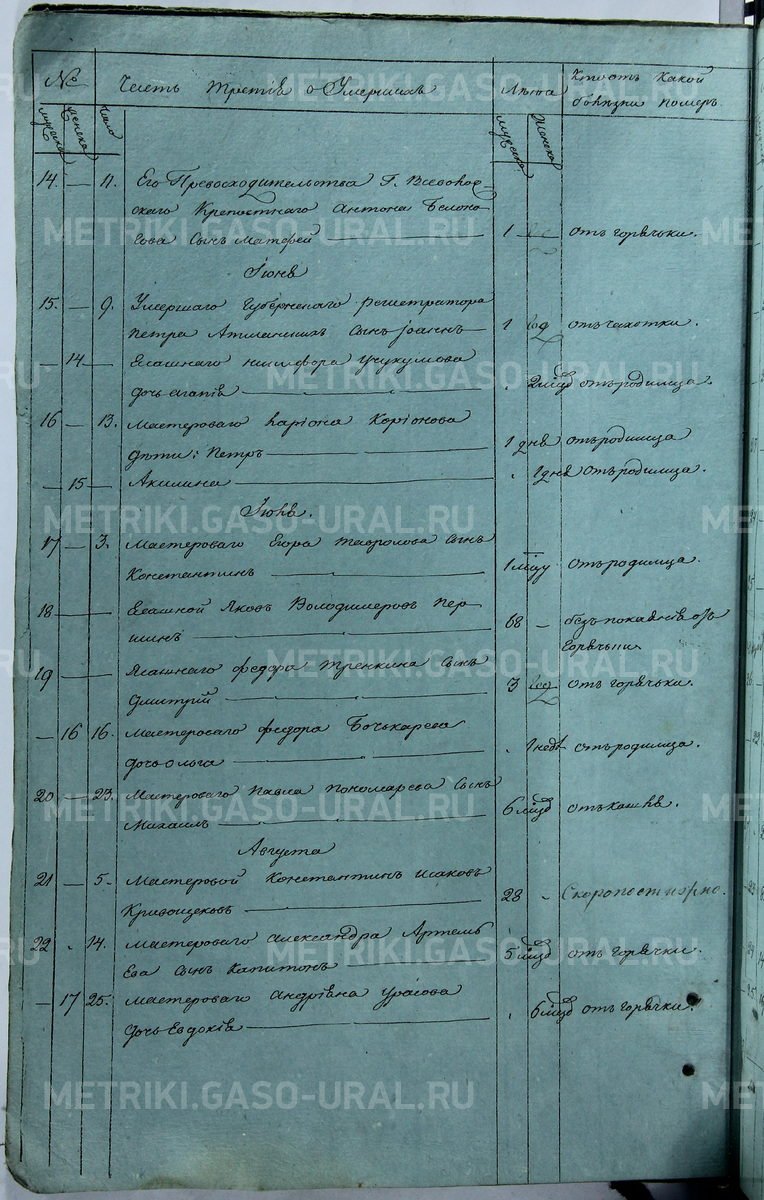 № Часть третія о Умершихъ Лѣта Кто отъ какой
болѣзни померъ
мужеска женска число мужеска женска
14. — 11. Его Превосходительства Г. Всеволод-
скаго Крепостнаго Антона Белоно-
гова Сынъ Матфей — 1 год отъ горячьки.
Іюня
15. — 9. Умершаго Губернскаго регистратора
Петра сынъ Іоаннъ — 1 год отъ чахотки.
— 14 — Ясашнаго Никифора
дочь Агапія — 2 мѣсц отъ родимца.
16 — 13. Мастероваго Ларіона Коріонова
дѣти: Петръ — 1 дня отъ родимца
— 15 — Акилина — 1 дня отъ родимца.
Іюля.
17 — 3. Мастероваго Егора Сынъ
Константинъ — 1 мѣсц отъ родимца.
18 — Ясашной Яковъ Володимеровъ Пер-
шинъ — 68 — безъ покаянія отъ
Горячьки.
19 — Ясашнаго Федора Тренкина Сынъ
Дмитрій — 3 год отъ горячьки.
— 16 16. Мастероваго Федора Бочькарева
дочь Ольга — 1 недѣ отъ родимца.
20 — 23. Мастероваго Павла Пономарева Сынъ
Михаилъ — 6 мѣсц отъ кашля.
Августа
21 — 5. Мастеровой Константинъ Исаковъ
Кривощековъ — 28 — Скоропостижно.
22 . 14. Мастероваго Александра Артемь-
ева сынъ Капитонъ — 5 мѣсц отъ Горячки.
— 17 25. Мастероваго Андріяна Урасова
дочь Евдокія — 6 мѣсц отъ горячки.
METRIKI.GASO-URAL.RU